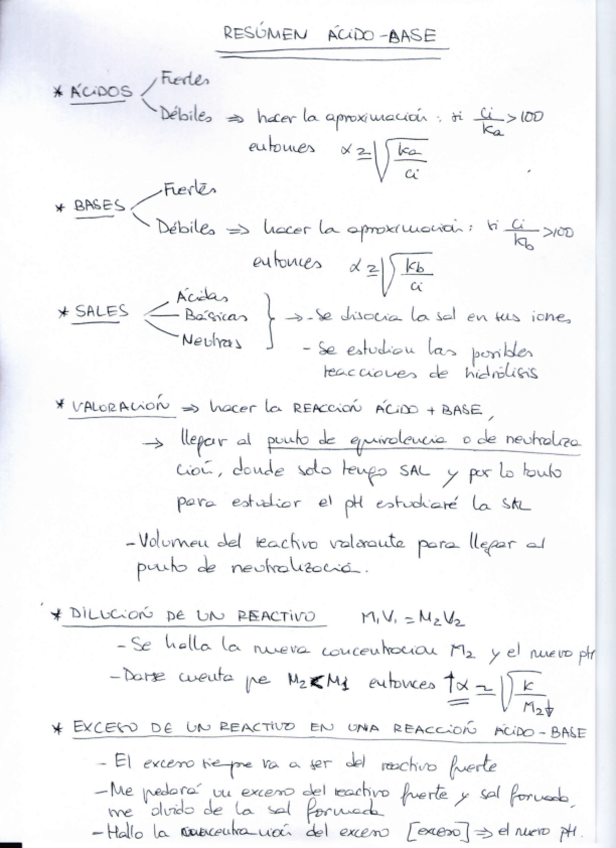 RESÚMEN ÁCIDO-BASE
* ÁCIDOS
Fuertes
Débiles ⇒ hacer la aproximación: si ci/ka > 100
entonces α ≃ √(ka/ci)
* BASES
Fuertes
Débiles ⇒ hacer la aproximación: si ci/kb > 100
entonces α ≃ √(kb/ci)
* SALES
Ácidas
Básicas
Neutras
→ - Se disocia la sal en sus iones
- Se estudian las posibles
reacciones de hidrólisis
* VALORACIÓN ⇒ hacer la REACCIÓN ÁCIDO + BASE,
→ llegar al punto de equivalencia o de neutraliza
ción, donde solo tengo SAL y por lo tanto
para estudiar el pH estudiaré la SAL
- Volumen del reactivo valorante para llegar al
punto de neutralización.
* DILUCIÓN DE UN REACTIVO M₁V₁ = M₂V₂
- Se halla la nueva concentración M₂ y el nuevo pH
- Darse cuenta que M₂ < M₁ entonces ↑α ≃ √(k/M₂↓)
* EXCESO DE UN REACTIVO EN UNA REACCIÓN ÁCIDO-BASE
- El exceso siempre va a ser del reactivo fuerte
- Me pedará un exceso del reactivo fuerte y sal formada,
me olvido de la sal formada
- Hallo la concentración del exceso [exceso] ⇒ el nuevo pH.